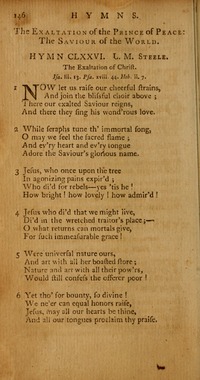 146 HYMNS.
The Exaltation of the Prince of Peace:
The Saviour of the World.
HYMN CLXXVI. L. M. Steele.
The Exaltation of Christ.
Isa. lii. 13. Psa. xviii. 44. Heb. ii. 7.
1 NOW let us raise our cheerful strains,
And join the blissful choir above;
There our exalted Saviour reigns,
And there they sing his wond'rous love.
2 While seraphs tune th' immortal song,
O may we feel the sacred flame;
And ev'ry heart and ev'ry tongue
Adore the Saviour's glorious name.
3 Jesus, who once upon the tree
In agonizing pains expir'd;
Who di'd for rebels—yes 'tis he!
How bright! how lovely! how admir'd!
4 Jesus who di'd that we might live,
Di'd in the wretched traitor's place;—
O what returns can mortals give,
For such immeasurable grace!
5 Were universal nature ours,
And art with all her boasted store;
Nature and art with all their pow'rs,
Would still confess the offerer poor!
6 Yet tho' for bounty, so divine!
We ne'er can equal honors raise,
Jesus, may all our hearts be thine,
And all our tongues proclaim thy praise.